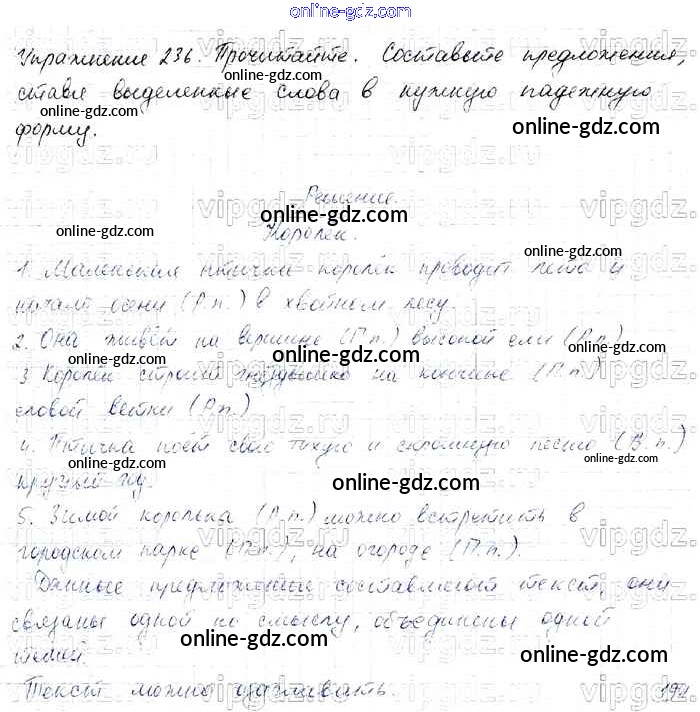 online-gdz.com
Упражнение 236. Прочитайте. Составьте предложения,
online-gdz.com
ставя выделенные слова в нужную падежную
online-gdz.com
форму.
Решение.
online-gdz.com
Королек.
online-gdz.com
1. Маленькая птичка королёк проводит лето и
начало осени (Р.п.) в хвойном лесу.
online-gdz.com
2. Она живёт на вершине (П.п.) высокой ели (Р.п)
online-gdz.com
3 Королёк строит на кончике (П.п.)
еловой ветки (Р.п.)
online-gdz.com
4. Птичка поёт свою тихую и скромную песню (В.п.)
круглый год.
online-gdz.com
5. Зимой королька (Р.п.) можно встретить в
online-gdz.com
городском парке (П.п.), на огороде (П.п.).
online-gdz.com
Данные предложения составляют текст, они
связаны одной по смыслу, объединены одной
online-gdz.com
темой.
online-gdz.com
Текст можно озаглавить.
online-gdz.com
192